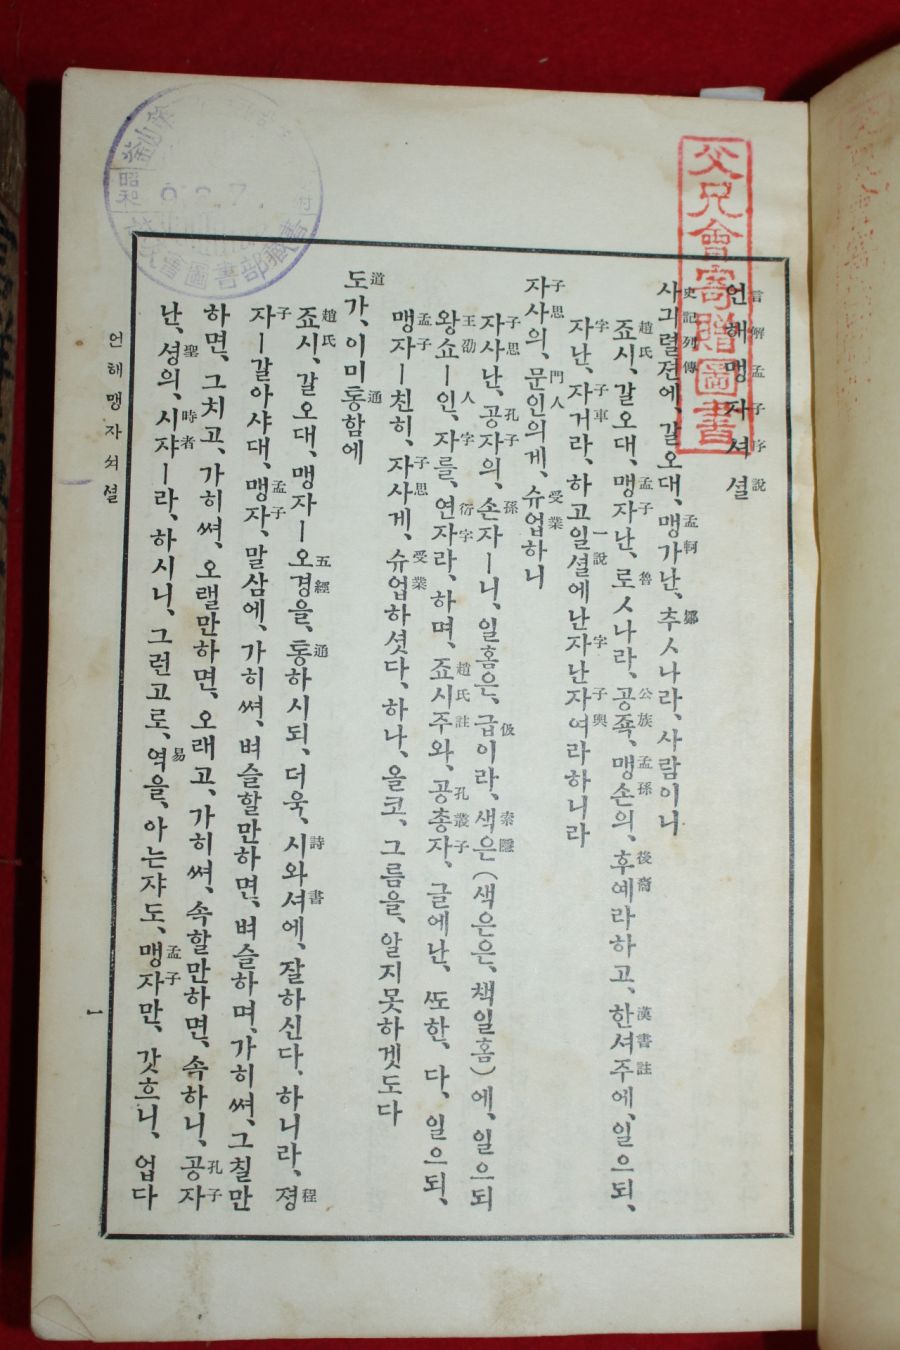 父兄會寄贈圖書
언해맹자셔셜
言解孟子序說
사긔렬젼에、갈오대、맹가난、추ㅅ나라、사람이니
史記列傳 孟軻 鄒
죠시、갈오대、맹자난、로ㅅ나라、공죡、맹손의、후예라하고、한셔주에、일으되、
趙氏 孟子 魯 公族 孟孫 後裔 漢書註
자난、자거라、하고일셜에난자난자여라하니라
字 子車 一說 字 子輿
자사의、문인의게、슈업하니
子思 門人 受業
자사난、공자의、손자ㅣ니、일홈은、급이라、색은(색은은、책일홈)에、일으되
子思 孔子 孫 伋 索隱
왕쇼ㅣ인、자를、연자라、하며、죠시주와、공총자、글에난、ᄯᅩ한、다、일으되、
王劭 人字 衍字 趙氏註 孔叢子
맹자ㅣ친히、자사게、슈업하셧다、하나、올코、그름을、알지못하겟도다
孟子 子思 受業
도가、이미통함에
道 通
죠시、갈오대、맹자ㅣ오경을、통하시되、더욱、시와셔에、잘하신다、하니라、졍
趙氏 五經 通 詩書 程
자ㅣ갈아샤대、맹자、말삼에、가히ᄡᅧ、벼슬할만하면、벼슬하며、가히ᄡᅧ、그칠만
子 孟子
하면、그치고、가히ᄡᅧ、오랠만하면、오래고、가히ᄡᅧ、속할만하면、속하니、공자
孔子
난、셩의、시쟈ㅣ라、하시니、그런고로、역을、아는쟈도、맹자만、갓흐니、업다
聖 時者 易 孟子
언해맹자셔셜
一
昭和
9.2.7.
圖書部藏書